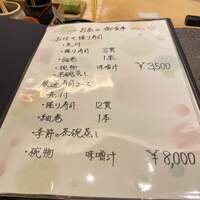 お昼の御食事
おまかせ握り寿司
・先付
・握り寿司 12貫
・細巻 1本
・椀物 味噌汁
・茶碗蒸し
¥3,500
厳選寿司コース
・先付
・握り寿司 12貫
・細巻 1本
・季節の茶碗蒸し
・椀物 味噌汁
¥8,000